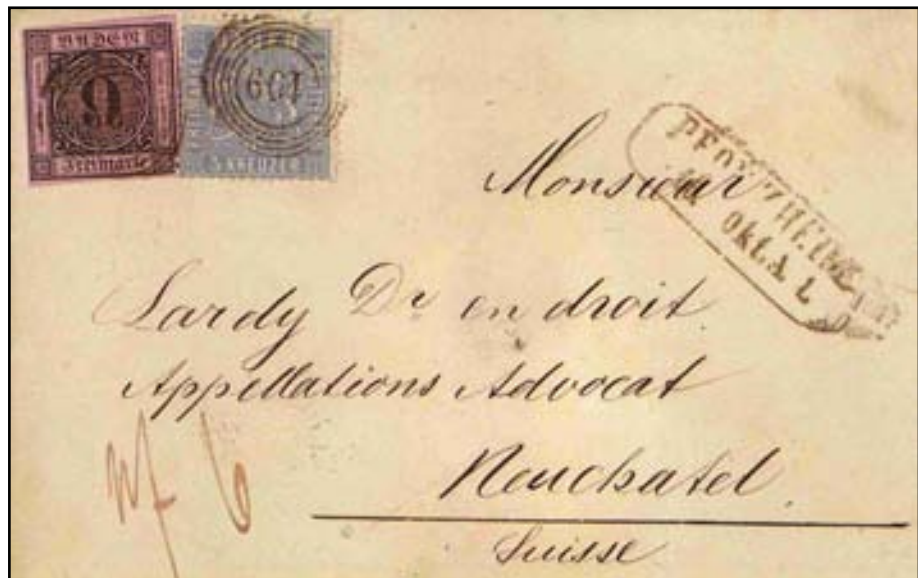 BADEN
9
Freimarke
109
3 KREUZER
PFORZHEIM
Okt.A
Monsieur
Lardy Dr en droit
Appellations Advocat
Neuchatel
Suisse
6